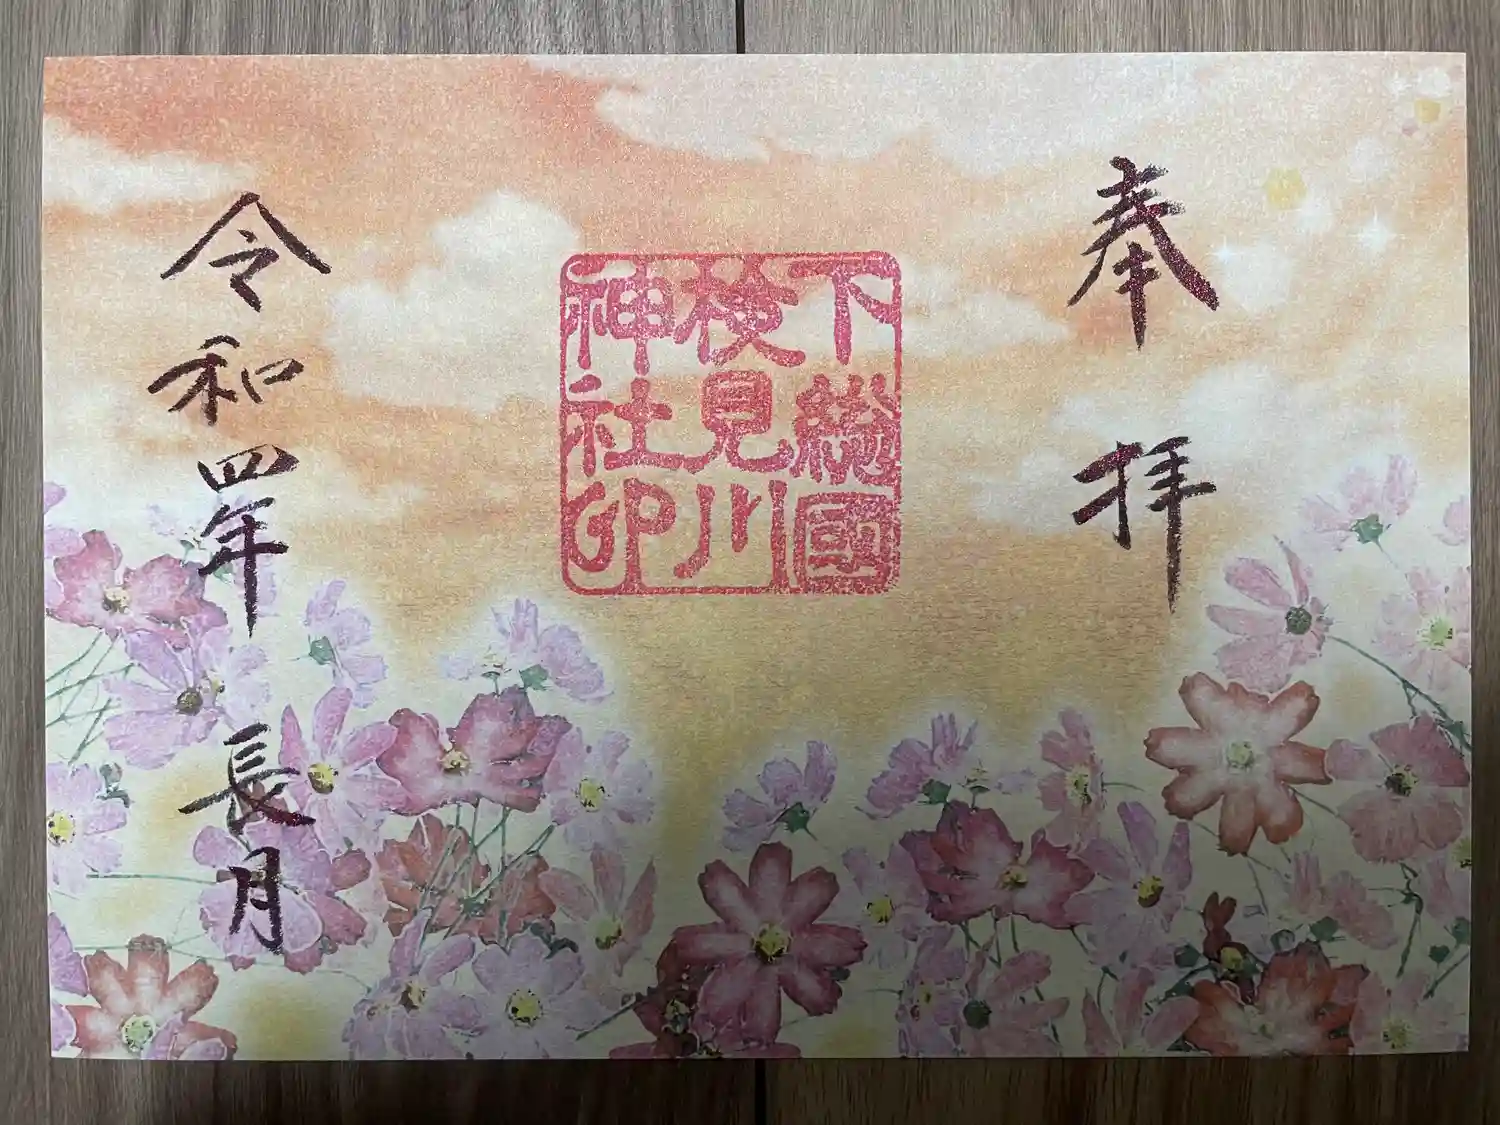 奉拝
下総國
検見川
神社印
令和四年 長月